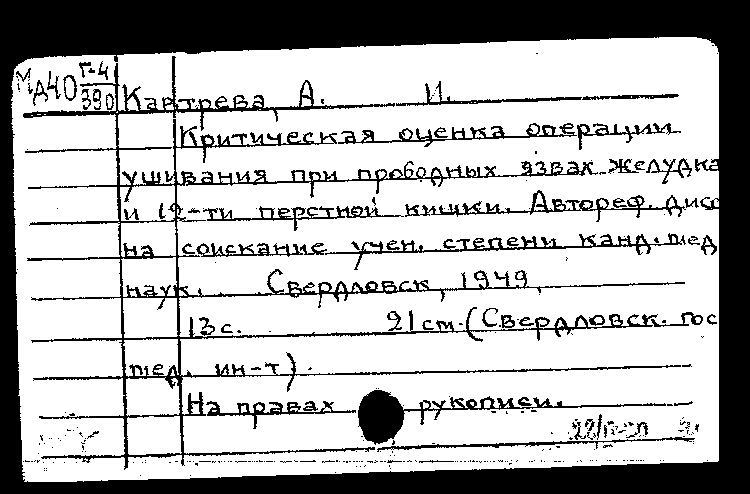 МД40 Г-4
390
Картрева, А. И.
Критическая оценка операции
ушивания при прободных язвах желудка
и 12-ти перстной кишки. Автореф. дисс
на соискание учен. степени канд. мед
наук. Свердловск, 1949,
13 с. 21 см. (Свердловск. гос
мед. ин-т).
На правах рукописи.